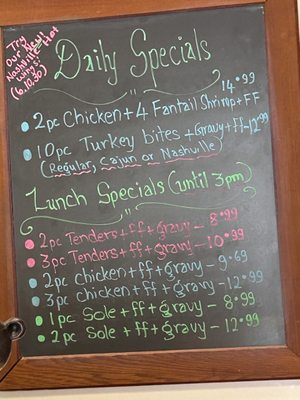 Try
Our New
Nashville Hot
Wings!
(6,10,20)
Daily Specials
14.99
2pc Chicken + 4 Fantail Shrimp + FF
10pc Turkey bites + Gravy + ff - 12.99
(Regular, Cajun or Nashville)
Lunch Specials (until 3pm)
2pc Tenders + ff + gravy - 8.99
3pc Tenders + ff + gravy - 10.99
2pc chicken + ff + gravy - 9.69
3pc chicken + ff + gravy - 12.99
1pc Sole + ff + gravy - 8.99
2pc Sole + ff + gravy - 12.99